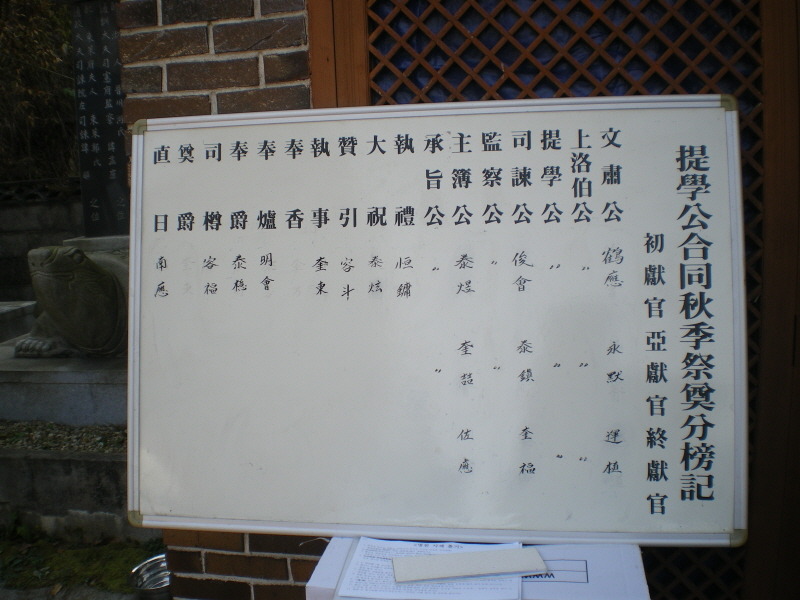 提學公合同秋季祭奠分榜記
初獻官 亞獻官 終獻官
文肅公 鶴應 永默 運植
上洛伯公 〃 〃 〃
提學公 〃 〃 〃
司諫公 俊會 泰鎭 奎福
監察公 〃 〃
主簿公 泰煜 奎喆 佐應
承旨公 〃 〃
執禮 恒鏞
大祝 泰炫
贊引 容斗
執事 奎東
奉香
奉爐 明會
奉爵 泰穩
司樽 容福
奠爵
直日 南應